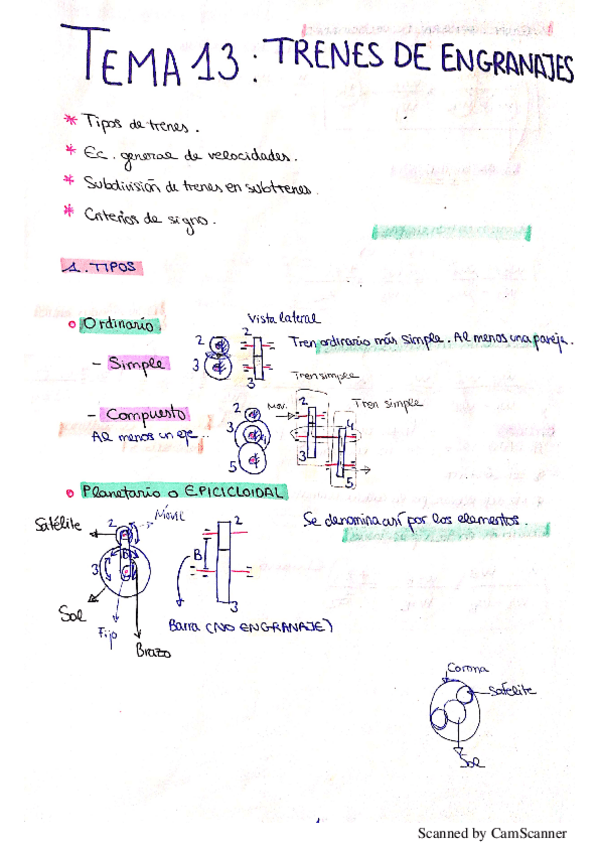 TEMA 13: TRENES DE ENGRANAJES
* Tipos de trenes.
* Ec. general de velocidades.
* Subdivisión de trenes en subtrenes.
* Criterios de signo.
1. TIPOS
Ordinario.
Vista lateral
2
3
2
3
Tren ordinario más simple. Al menos una pareja.
- Simple
Tren simple
- Compuesto
Al menos un eje..
2
3
4
5
Mov.
2
3
4
5
Tren simple
Planetario o EPICICLOIDAL
Se denomina así por los elementos.
Satélite
2
Móvil
3
B
2
3
Sol
Fijo
Brazo
Barra (NO ENGRANAJE)
Corona
Satélite
Sol
1
Scanned by CamScanner